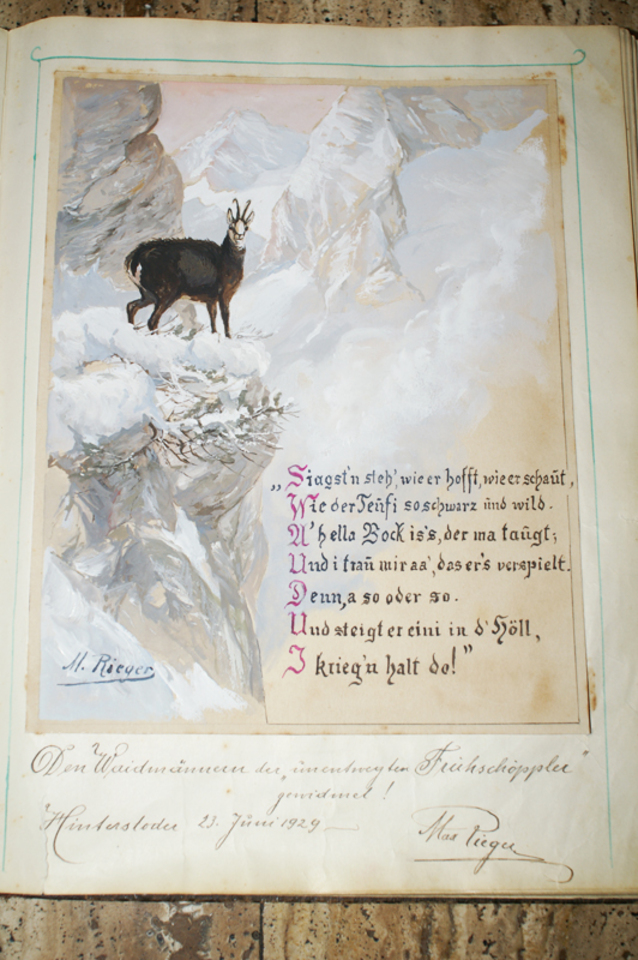 „Siagst'n steh', wie er hofft, wie er schaut,
Wie der Teufi so schwarz und wild.
A' hella Bock is's, der ma taugt;
Und i trau mir aa', das er's verspielt.
Denn, a so oder so.
Und steigt er eini in d' Höll,
I krieg'n halt do!"
M. Rieger
Den Waidmännern der „unentwegten Frühschöppler"
gewidmet!
Hinterstoder 23. Juni 1929
Max Rieger